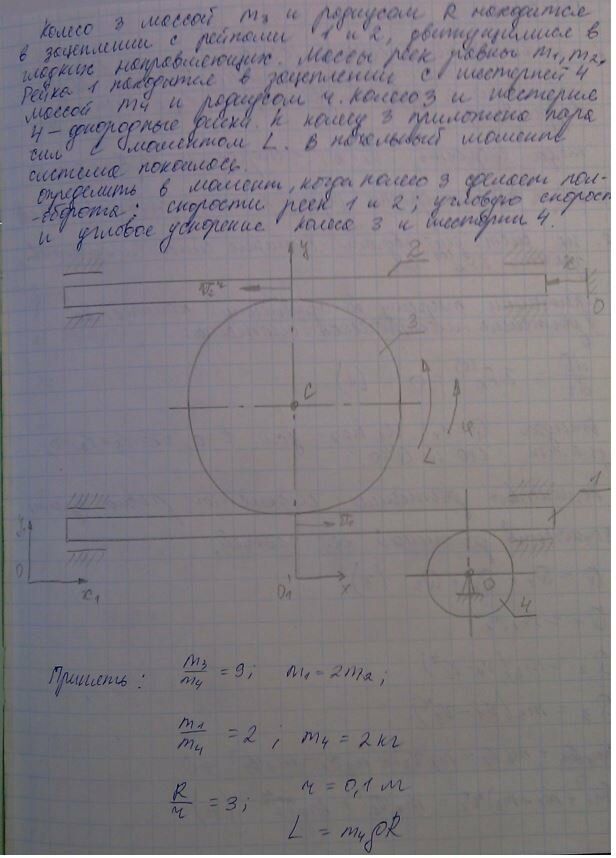 Колесо 3 массой m3 и радиусом R находится
в зацеплении с рейками 1 и 2, движущимися в
гладких направляющих. Массы реек равны m1, m2.
Рейка 1 находится в зацеплении с шестерней 4
массой m4 и радиусом r. Колесо 3 и шестерня
4 - однородные диски. К колесу 3 приложена пара
сил с моментом L. В начальный момент
система покоилась.
Определить в момент, когда колесо 3 сделает пол-
-оборота: скорости реек 1 и 2; угловую скорость
и угловое ускорение колеса 3 и шестерни 4.
y
2
x
O
3
C
L
φ
1
y1
O
x1
O1'
x
O
4
Принять: m3/m4 = 9; m1 = 2m2;
m1/m4 = 2; m4 = 2 кг
R/r = 3; r = 0,1 м
L = m4gR